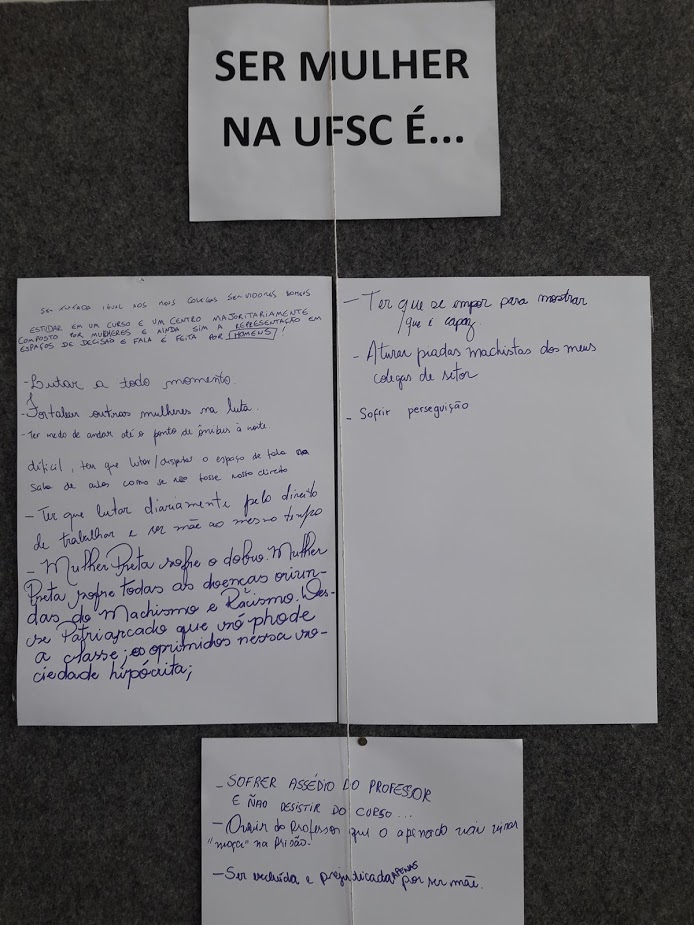 SER MULHER
NA UFSC É...
SER TRATADA IGUAL AOS MEUS COLEGAS SERVIDORES HOMENS
ESTUDAR EM UM CURSO E UM CENTRO MAJORITARIAMENTE
COMPOSTO POR MULHERES E AINDA SIM A REPRESENTAÇÃO EM
ESPAÇOS DE DECISÃO E FALA É FEITA POR HOMENS!
- Lutar a todo momento.
- Fortalecer outras mulheres na luta.
- Ter medo de andar até o ponto de ônibus à noite
difícil, ter que lutar/disputar o espaço de fala na
sala de aula como se não fosse nosso direito
- Ter que lutar diariamente pelo direito
de trabalhar e ser mãe ao mesmo tempo
- Mulher Preta sofre o dobro. Mulher
Preta sofre todas as doenças oriun-
das do Machismo e Racismo. Des-
se Patriarcado que só phode
a classe; os oprimidos nessa so-
ciedade hipócrita;
- Ter que se impor para mostrar
que é capaz
- Aturar piadas machistas dos meus
colegas de setor
- Sofrir perseguição
- SOFRER ASSÉDIO DO PROFESSOR
E NÃO DESISTIR DO CURSO...
- Ouvir do professor que o apenado vai virar
"moça" na prisão.
- Ser excluída e prejudicada APENAS por ser mãe.